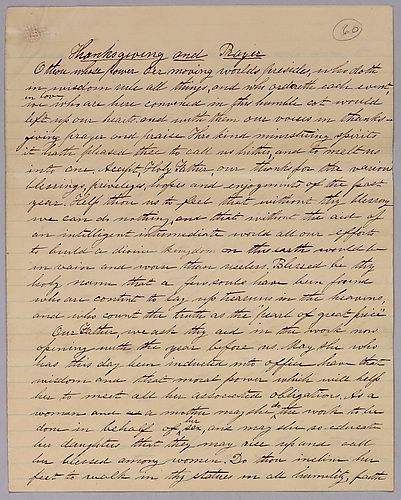 60
Thanksgiving and Prayer
O thou whose power o'er moving worlds presides, who doth
in wisdom rule all things, and who ordereth each event,
in love,
we who are here convened in this humble cot would
lift up our hearts and with them our voices in thanks-
giving, prayer and praise. Thro kind ministering spirits
it hath pleased thee to call us hither, and to melt us
into one. Accept, Holy Father our thanks for the various
blessings, priveleges, hopes and enjoyments of the past
year. Help thou us to feel that without thy blessing
we can do nothing, and that without the aid of
an intelligent intermediate world all our efforts
to build a divine kingdom on this earth would be
in vain and worse than useless. Blessed be thy
holy name that a few souls have been found
who are content to lay up treasures in the heavens,
and who count the truth as the "pearl of great price"
Our Father, we ask thy aid in the work now
opening with the year before us. May she who
has this day been inducted into office have that
wisdom and that moral power which will help
her to meet all her associated obligations. As a
woman and as a mother may she do the work to be
done in behalf of her sex, and may she so educate
her daughters that they may rise up and call
her blessed among women. Do thou incline her
feet to walk in thy statues in all humility, faith